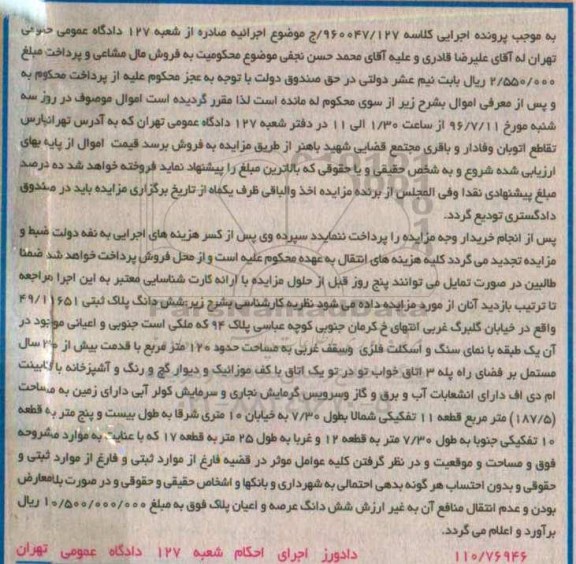 به موجب پرونده اجرایی کلاسه ۹۶۰۰۴۷/۱۲۷/ج موضوع اجرائیه صادره از شعبه ۱۲۷ دادگاه عمومی حقوقی
تهران له آقای علیرضا قادری و علیه آقای محمد حسن نجفی موضوع محکومیت به فروش مال مشاعی و پرداخت مبلغ
۲/۵۵۰/۰۰۰ ریال بابت نیم عشر دولتی در حق صندوق دولت با توجه به عجز محکوم علیه از پرداخت محکوم به
و پس از معرفی اموال بشرح زیر از سوی محکوم له مانده است لذا مقرر گردیده است اموال موصوف در روز سه
شنبه مورخ ۹۶/۷/۱۱ از ساعت ۱/۳۰ الی ۱۱ در دفتر شعبه ۱۲۷ دادگاه عمومی تهران که به آدرس تهرانپارس
تقاطع اتوبان وفادار و باقری مجتمع قضایی شهید باهنر از طریق مزایده به فروش برسد قیمت اموال از پایه بهای
ارزیابی شده شروع و به شخص حقیقی و یا حقوقی که بالاترین مبلغ را پیشنهاد نماید فروخته خواهد شد ده درصد
مبلغ پیشنهادی نقدا وفی المجلس از برنده مزایده اخذ والباقی ظرف یکماه از تاریخ برگزاری مزایده باید در صندوق
دادگستری تودیع گردد.
پس از انجام خریدار وجه مزایده را پرداخت ننمایدد سپرده وی پس از کسر هزینه های اجرایی به نفه دولت ضبط و
مزایده تجدید می گردد کلیه هزینه های انتقال به عهده محکوم علیه است و از محل فروش پرداخت خواهد شد ضمنا
طالبین در صورت تمایل می توانند پنج روز قبل از حلول مزایده با ارائه کارت شناسایی معتبر به این اجرا مراجعه
تا ترتیب بازدید آنان از مورد مزایده داده می شود نظریه کارشناسی بشرح زیر:شش دانگ پلاک ثبتی ۴۹/۱۱۶۵۱
واقع در خیابان گلبرگ غربی انتهای خ کرمان جنوبی کوچه عباسی پلاک ۹۴ که ملکی است جنوبی و اعیانی موجود در
آن یک طبقه با نمای سنگ و اسکلت فلزی وسقف غربی به مساحت حدود ۱۲۰ متر مربع با قدمت بیش از سال
مستمل بر فضای راه پله ۳ اتاق خواب تو در تو یک اتاق با کف موزائیک و دیوار گچ و رنگ و آشپزخانه با کابینت
ام دی اف دارای انشعابات آب و برق و گاز وسرویس گرمایش بخاری و سرمایش کولر آبی دارای زمین به مساحت
(۱۸۷/۵) متر مربع قطعه ۱۱ تفکیکی شمالا بطول ۷/۳۰ به خیابان ۱۰ متری شرقا به طول بیست و پنج متر به قطعه
۱۰ تفکیکی جنوبا به طول ۷/۳۰ متر به قطعه ۱۲ و غربا به طول ۲۵ متر به قطعه ۱۷ که با عنایت به موارد مشروحه
فوق و مساحت و موقعیت و در نظر گرفتن کلیه عوامل موثر در قضیه فارغ از موارد ثبتی و فارغ از موارد ثبتی و
حقوقی و بدون احتساب هر گونه بدهی احتمالی به شهرداری و بانکها و اشخاص حقیقی و حقوقی و در صورت بلامعارض
بودن و عدم انتقال منافع آن به غیر ارزش شش دانگ عرصه و اعیان پلاک فوق به مبلغ ۱۰/۵۰۰/۰۰۰/۰۰۰ ریال
برآورد و اعلام می گردد.
۱۱۰/۷۶۹۴۶ دادورز اجرای احکام شعبه ۱۲۷ دادگاه عمومی تهران